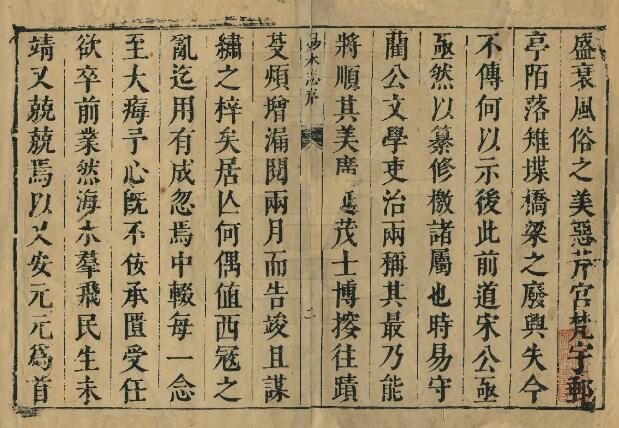 盛衰風俗之美惡芹宮梵宇郵
亭陌落雉堞橋梁之廢興失今
不傳何以示後此前道宋公亟
亟然以纂修檄諸屬也時易守
藺公文學吏治兩稱其最乃能
將順其美席 茂士博搜往蹟
芟煩增漏閱兩月而告竣且謀
繡之梓矣居亡何偶值西冦之
亂迄用有成忽焉中輟每一念
至大痗予心旣不佞承匱受任
欲卒前業然海水羣飛民生未
靖又兢兢焉以乂安元元爲首
易水志序
二